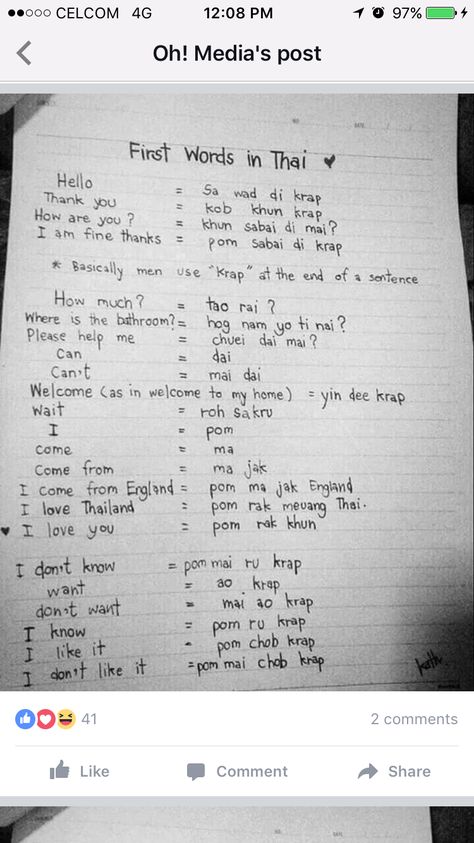 CELCOM 4G 12:08 PM 97%
Oh! Media's post
First Words in Thai ♥
Hello = Sa wad di krap
Thank you = kob khun krap
How are you? = khun sabai di mai?
I am fine thanks = pom sabai di krap
* Basically men use "krap" at the end of a sentence
How much? = tao rai?
Where is the bathroom? = hog nam yo ti nai?
Please help me = chuei dai mai?
Can = dai
Can't = mai dai
Welcome (as in welcome to my home) = yin dee krap
Wait = roh sakru
I = pom
come = ma
Come from = ma jak
I come from England = pom ma jak England
I love Thailand = pom rak meuang Thai.
♥ I love you = pom rak khun
I don't know = pom mai ru krap
want = ao krap
don't want = mai ao krap
I know = pom ru krap
I like it - pom chob krap
I don't like it = pom mai chob krap
41 2 comments
Like Comment Share